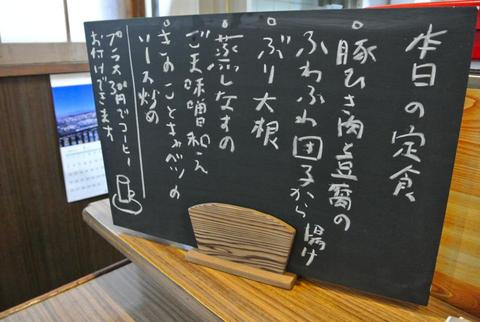 本日の定食
・豚ひき肉と豆腐の
ふわふわ団子から揚げ
・ぶり大根
・蒸しなすの
ごま味噌和え
・きのことキャベツの
ソース炒め
プラス300円でコーヒー
お付けできます